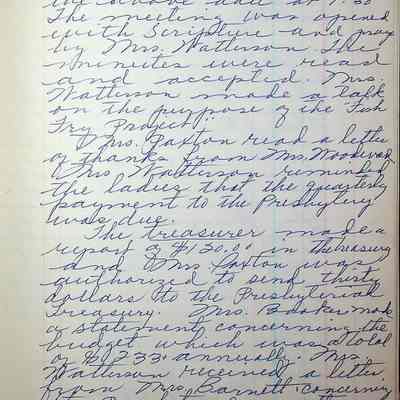 the above date at 7:30
The meeting was opened
with Scripture and pray
by Mrs. Watterson. The
minutes were read
and accepted. Mrs.
Watterson made a talk
on the purpose of the "Fish
Fry Project".
Mrs. Paxton read a letter
of thanks from Mrs. Woodward.
Mrs Watterson reminded
the ladies that the quarterly
payment to the Presbytery
was due.
The treasurer made a
report of $130.00 in the treasury
and Mrs Paxton was
authorized to send thirty
dollars to the Presbyterial
Treasury. Mrs. Booker made
a statement concerning the
budget which was a total
of $1,233. annually. Mrs.
Watterson received a letter
from Mrs. Barnett, concerning